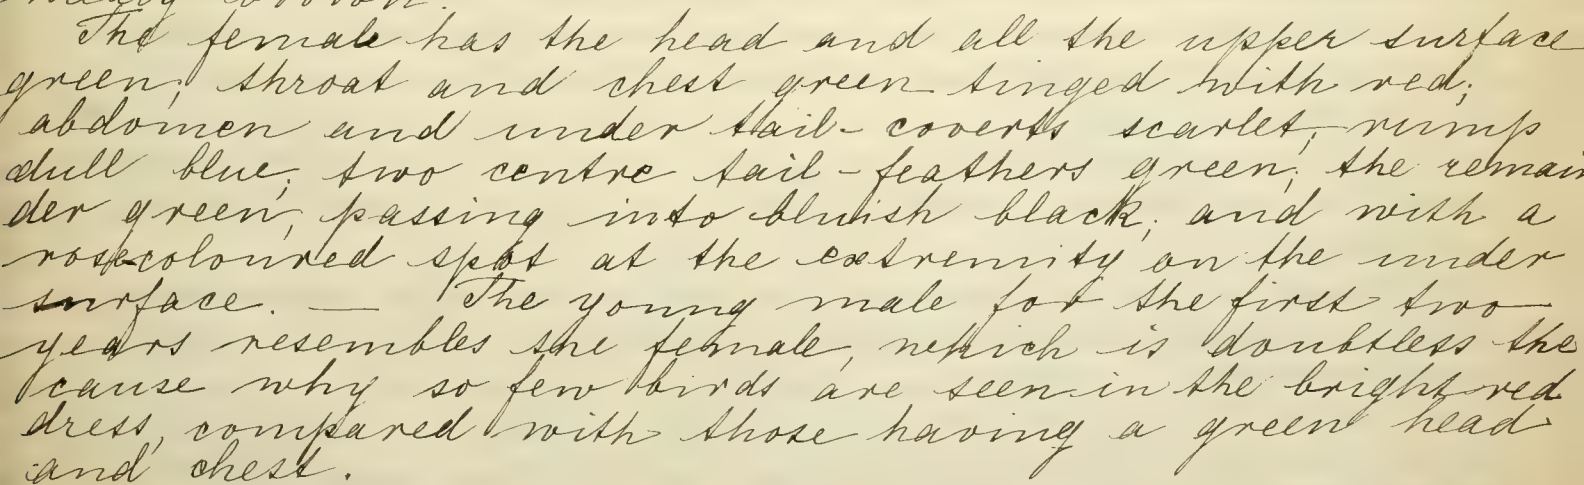 The female has the head and all the upper surface
green; throat and chest green tinged with red;
abdomen and under tail-coverts scarlet; rump
dull blue; two centre tail-feathers green; the remain
der green, passing into bluish black; and with a
rose-coloured spot at the extremity on the under
surface. — The young male for the first two
years resembles the female, which is doubtless the
cause why so few birds are seen in the bright red
dress, compared with those having a green head
and chest.